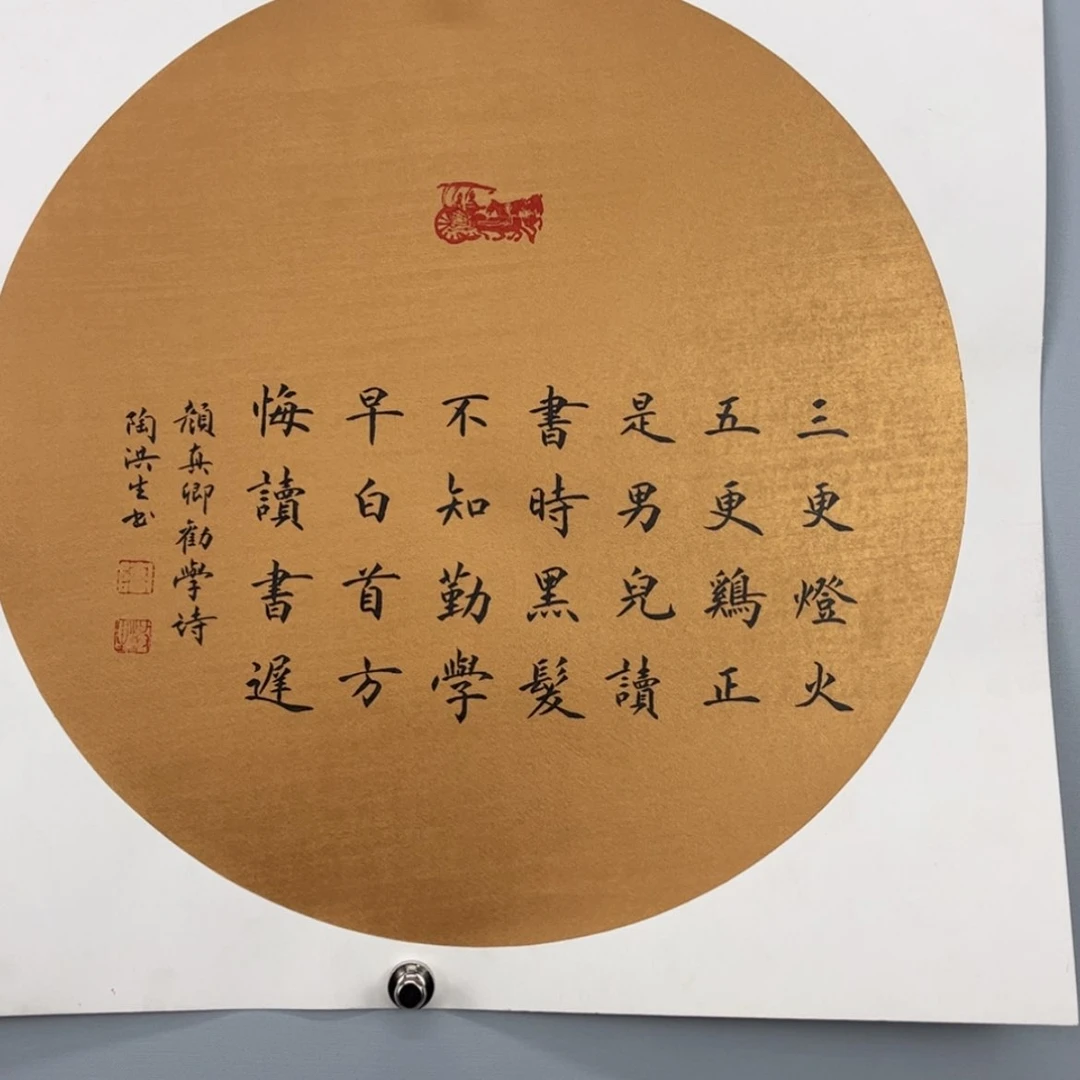 三更燈火
五更鷄正
是男兒讀
書時黑髮
不知勤學
早白首方
悔讀書遲
顏真卿勸學詩
陶洪生书